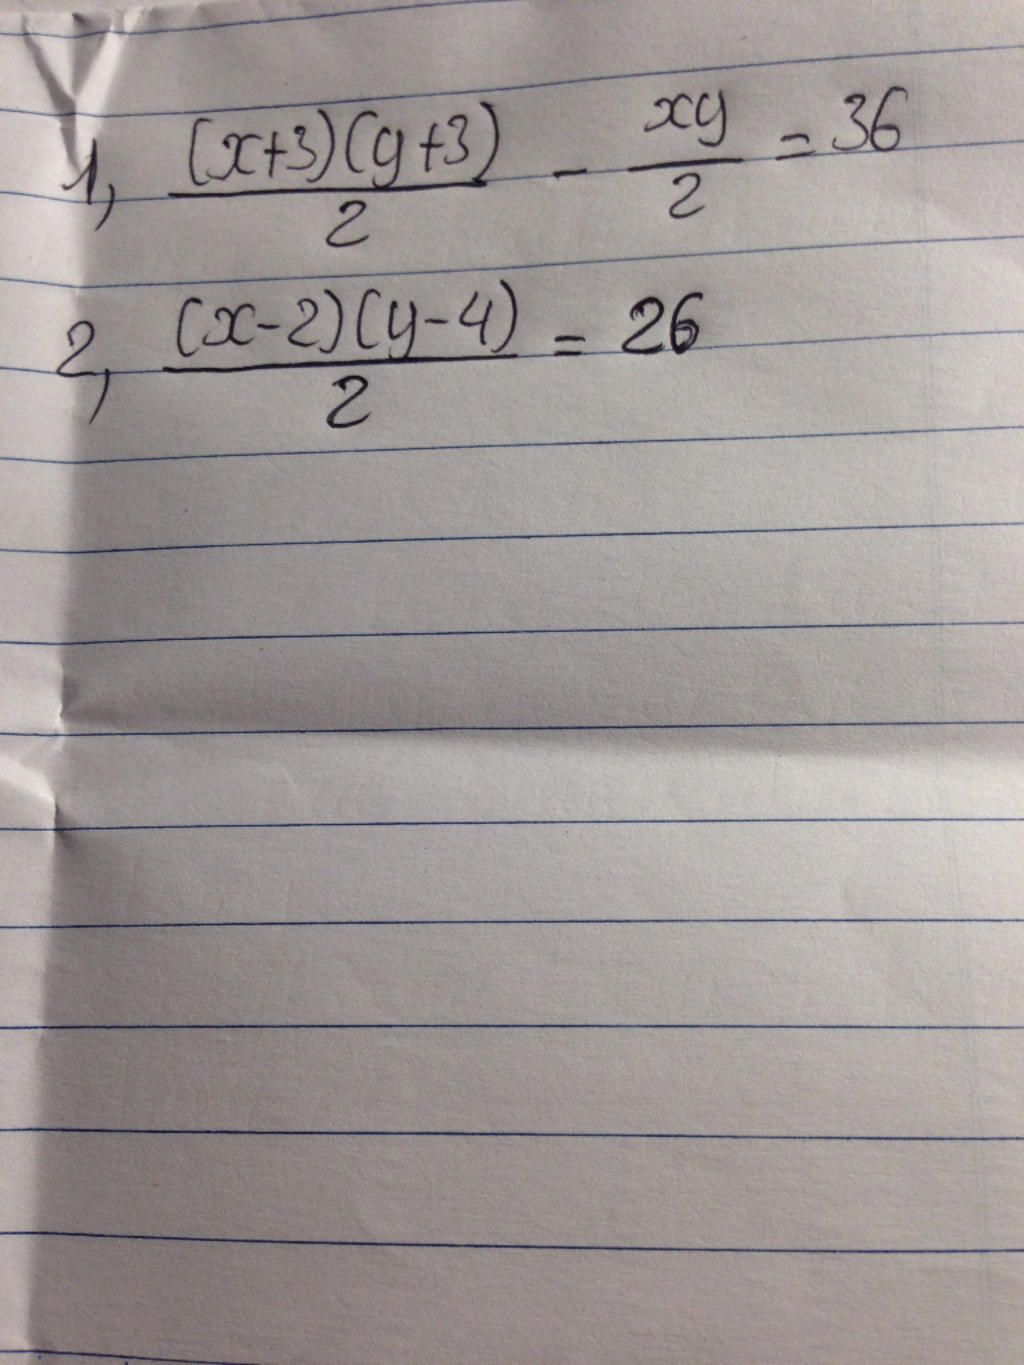 1, (x+3)(y+3)/2 - xy/2 = 36
2, (x-2)(y-4)/2 = 26